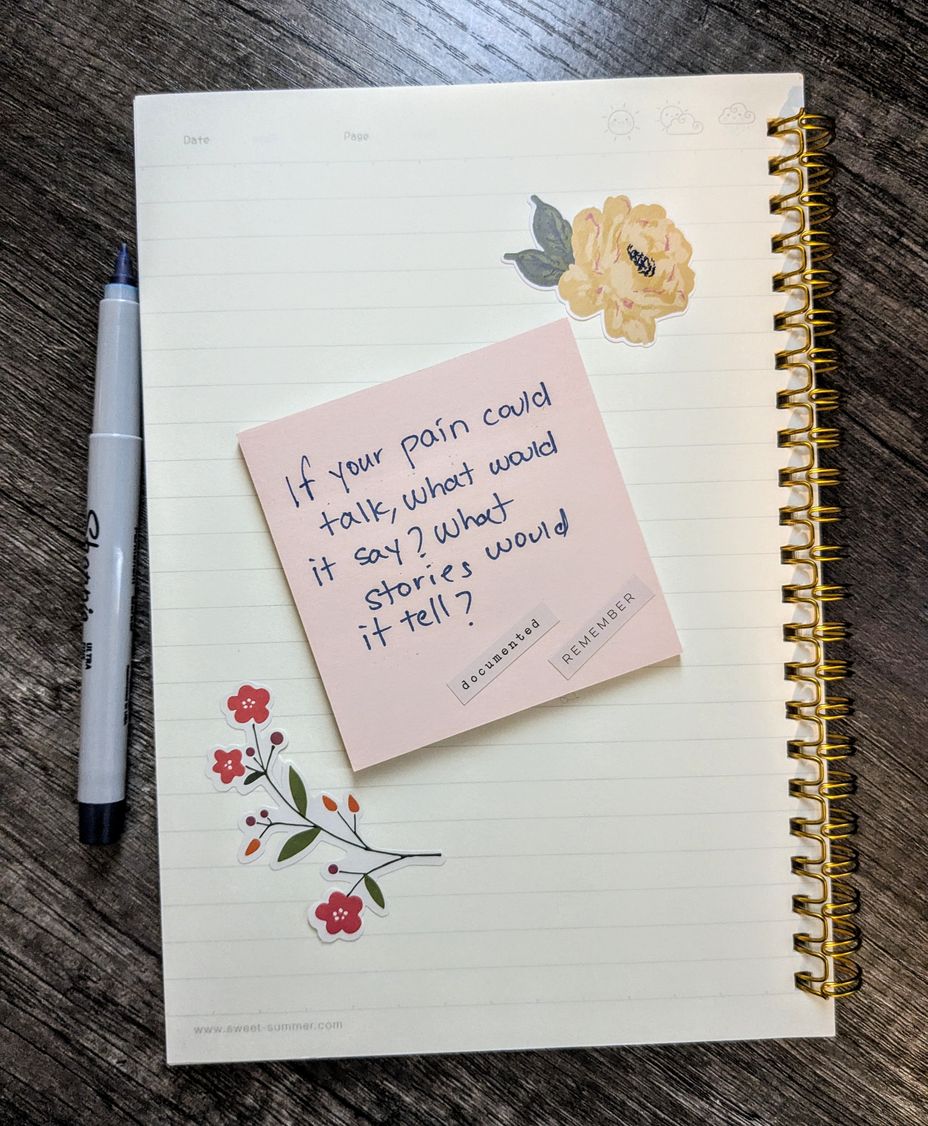 Date
Page
If your pain could
talk, what would
it say? What
stories would
it tell?
documented
REMEMBER
Sharpie
ULTRA
www.sweet-summer.com